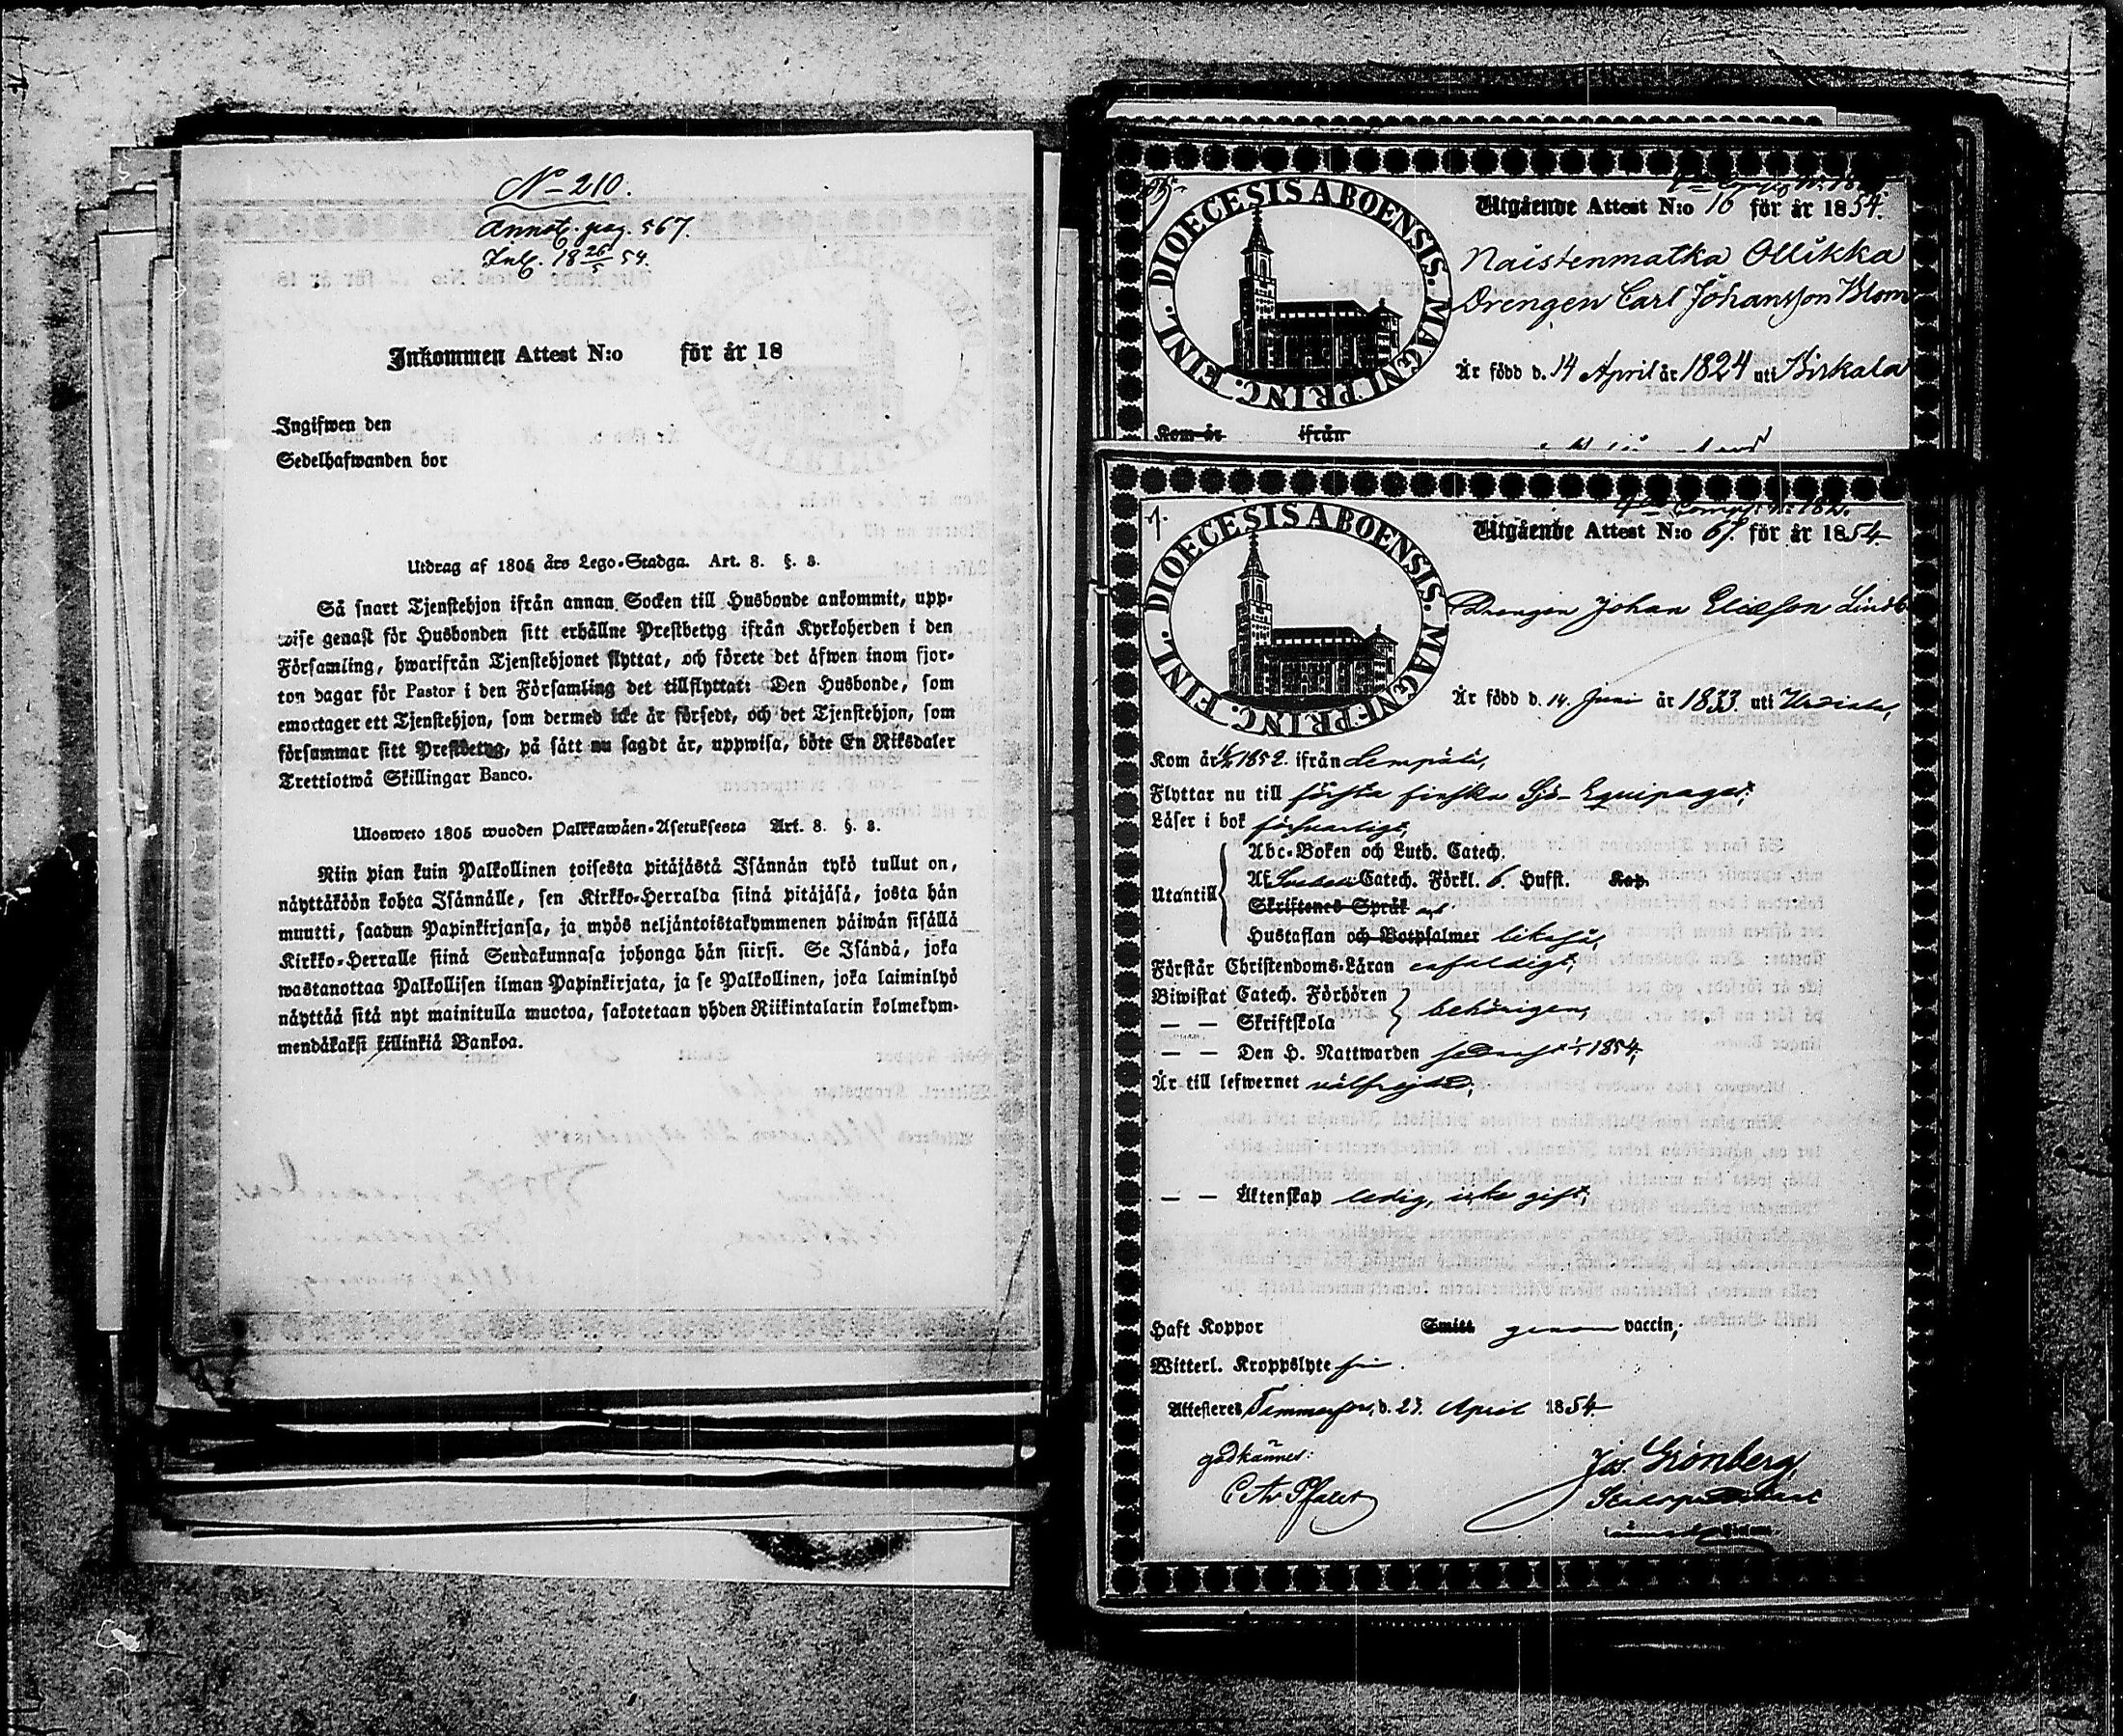 N 210.
Annot. pag. 567.
Inl. 18 26/5 54.
Inkommen Attest N:o för år 18
Ingifwen den
Sedelhafwanden bor
Utdrag af 1805 års Lego-Stadga. Art. 8. §. 3.
Så snart Tjenstehjon ifrån annan Socken till Husbonde ankommit, upp-
wise genast för Husbonden sitt erhållne Prestbetyg ifrån Kyrkoherden i den
Församling, hwarifrån Tjenstehjonet flyttat, och förete det äfwen inom fjor-
ton dagar för Pastor i den Församling det tillflyttat: Den Husbonde, som
emottager ett Tjenstehjon, som dermed icke är försedt, och det Tjenstehjon, som
försummar sitt Prestbetyg, på sätt nu sagdt är, uppwisa, böte En Riksdaler
Trettiotwå Skillingar Banco.
Ulosweto 1805 wuoden Palkkawäen-Asetuksesta Art. 8. §. 3.
Niin pian kuin Palkollinen toisesta pitäjästä Isännän tykö tullut on,
näyttäköön kohta Isännälle, sen Kirkko-Herralda siinä pitäjäsä, josta hän
muutti, saadun Papinkirjansa, ja myös neljäntoistakymmenen päiwän sisällä
Kirkko-Herralle siinä Seurakunnasa johonga hän siirsi. Se Isändä, joka
wastanottaa Palkollisen ilman Papinkirjata, ja se Palkollinen, joka laiminlyö
näyttää sitä nyt mainitulla muotoa, sakotetaan yhden Riikintalarin kolmekym-
mendäkaksi killinkiä Bankoa.
DIOECESIS ABOENSIS. MAGNI PRINC. FINL.
Utgående Attest N:o 16 för år 1854.
Naistenmatka Ollikka
Drengen Carl Johansson Blom
Är född d. 14 April år 1824 uti Birkala
Kom år ifrån
7.
DIOECESIS ABOENSIS. MAGNI PRINC. FINL.
Utgående Attest N:o 67. för år 1854.
Drengen Johan Eliasson
Är född d. 14. Juni år 1833. uti Urdiala,
Kom år 1852. ifrån Lempälä,
Flyttar nu till första finska Sjö-Equipaget;
Läser i bok försvarligt,
Utantill
Abc-Boken och Luth. Catech.
Af Catech. Förkl. 6. Hufst. Kap.
Skriftenes Språk
Hustaflan och Botpsalmer likaså,
Förstår Christendoms-Läran enfaldigt,
Biwistat Catech. Förhören
— — Skriftskola behörigen,
— — Den H. Nattwarden sednast 1854,
Är till lefwernet välfrejdad,
— — Äktenskap ledig, icke gift,
Haft Koppor Smitt genom vaccin,
Witterl. Kroppslyte fri.
Attesteres Tammerfors, d. 23. April 1854.
godkännes:
Jos. Grönberg,